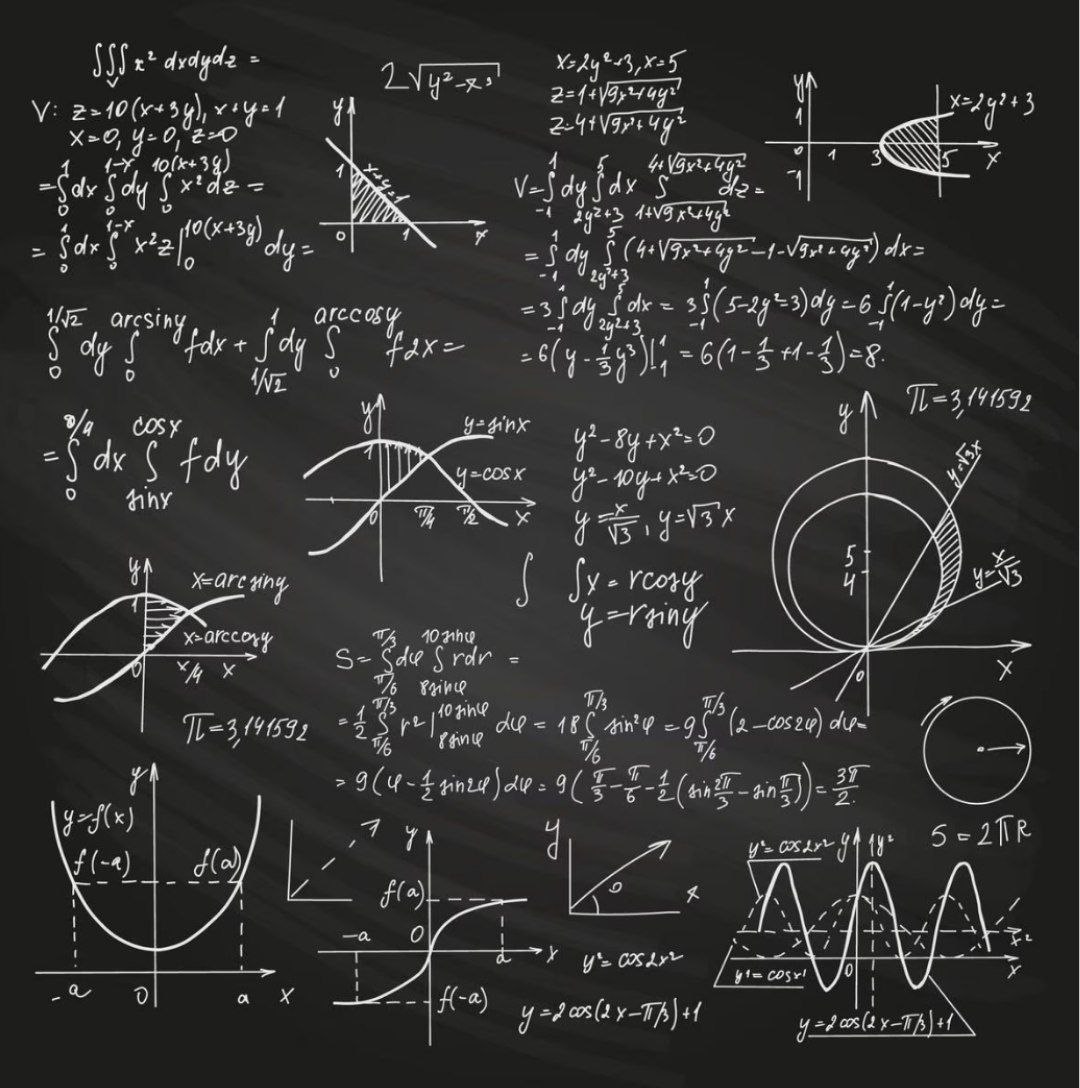 ∭ x² dxdydz =
V
V: z=10(x+3y), x+y=1
x=0, y=0, z=0
=∫₀¹dx ∫₀^(1-x)dy ∫₀^(10(x+3y)) x²dz =
= ∫₀¹dx ∫₀^(1-x) x²z|₀^(10(x+3y)) dy=
y
1
x+y=1
0 1 x
2√(y²-x³)
x=2y²+3, x=5
z=1+√(9x²+4y²)
z-4+√(9x²+4y²)
V=∫₋₁¹dy ∫_(2y²+3)^5 dx ∫_(1+√(9x²+4y²))^(4+√(9x²+4y²)) dz=
=∫₋₁¹ dy ∫_(2y²+3)^5 (4+√(9x²+4y²)-1-√(9x²+4y²))dx=
=3∫₋₁¹dy ∫_(2y²+3)^5 dx = 3∫₋₁¹(5-2y²=3)dy=6∫₋₁¹(1-y²)dy=
=6(y-⅓y³)|₋₁¹ = 6(1-⅓+1-⅓)=8.
y
1
x=2y²+3
0 1 3 5 x
-1
∫₀^(1/√2) dy ∫₀^(arcsiny) fdx + ∫_(1/√2)^1 dy ∫₀^(arccosy) fdx=
=∫₀ dx ∫_(sinx)^(cosx) fdy
y
y=sinx
1
y=cosx
0 π/4 π/2 x
y²-8y+x²=0
y²-10y+x²=0
y=x/√3, y=√3x
∫ ∫x=rcosy
y=rsiny
π=3,141592
y
y=√3x
5
4
y=x/√3
0 x
y
x=arcsiny
1
x=arccosy
0 x/4 x
π=3,141592
S=∫_(π/6)^(π/3)dφ ∫_(8sinφ)^(10sinφ) rdr =
=½∫_(π/6)^(π/3) r²|_(8sinφ)^(10sinφ) dφ = 18∫_(π/6)^(π/3) sin²φ =9∫_(π/6)^(π/3)(2-cos2φ)dφ=
=9(φ-½sin2φ)dφ=9(π/3-π/6-½(sin2π/3-sinπ/3))=3π/2.
y
y=f(x)
f(-a) f(a)
-a 0 a x
y
f(a)
-a 0 a x
f(-a)
y
x
y²=cos2x²
y=2cos(2x-π/3)+1
S=2πR
y²=cos2x² y 1y²
x²
y¹=cosx¹ 0 x
y=2cos(2x-π/3)+1